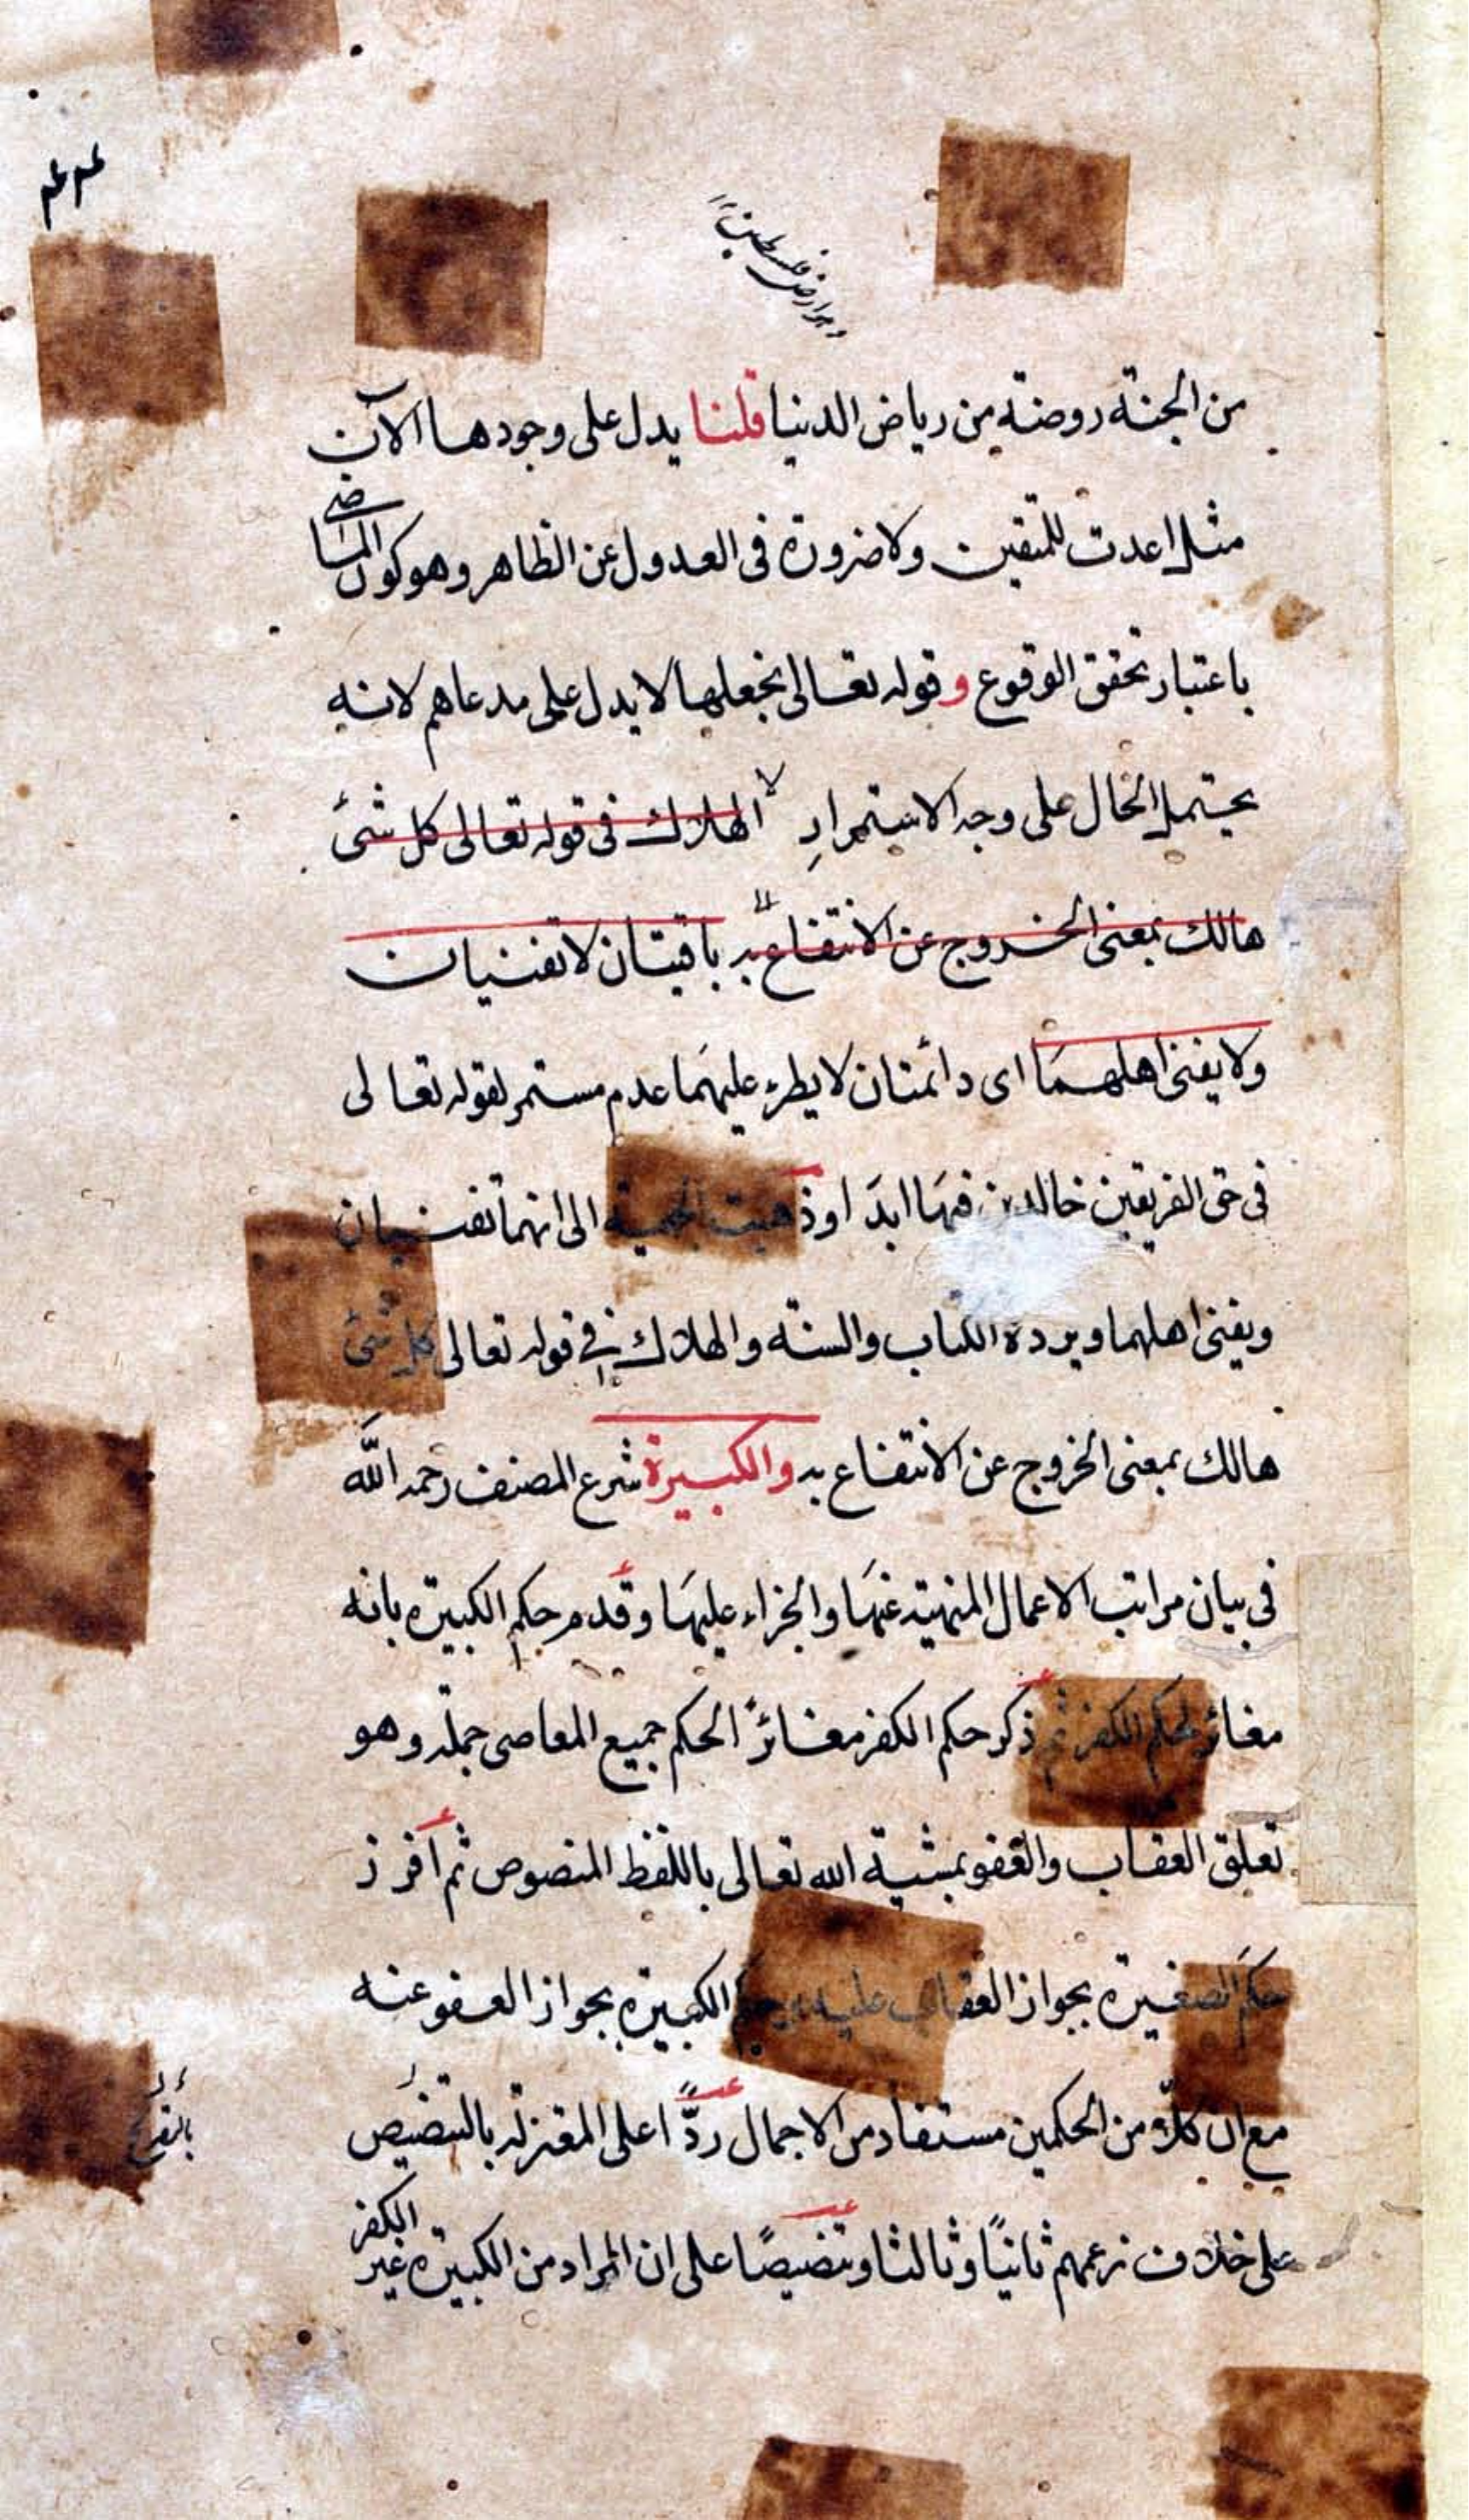 ٤٣٤
وهو ارض فلسطين
من الجنة روضة من رياض الدنيا قلنا يدل على وجودها الآن
مثل اعدت للمتقين ولا ضرورة فى العدول عن الظاهر وهو كون الماضى
باعتبار تحقق الوقوع وقوله تعالى نجعلها لا يدل على مدعاهم لانه
يحتمل الحال على وجه الاستمرار الهلاك فى قوله تعالى كل شئ
هالك بمعنى الخروج عن الانتفاع به باقيتان لا تفنيان
ولا يفنى اهلهما اى دائمتان لا يطرء عليهما عدم مستمر لقوله تعالى
فى حق الفريقين خالدين فيها ابدا وذهبت الجهمية الى انهما تفنيان
ويفنى اهلهما ويرده الكتاب والسنة والهلاك فى قوله تعالى كل شئ
هالك بمعنى الخروج عن الانتفاع به والكبيرة شرع المصنف رحمه الله
فى بيان مراتب الاعمال المنهية عنها والجزاء عليها وقدم حكم الكبيرة بانه
مغائر لحكم الكفر ثم ذكر حكم الكفر مغائرًا لحكم جميع المعاصى جملة وهو
تعلق العقاب والعفو بمشية الله تعالى باللفظ المنصوص ثم افرز
حكم الصغيرة بجواز العقاب عليه وحكم الكبيرة بجواز العفو عنه
مع ان كلاّ من الحكمين مستفاد من الاجمال ردًّا على المعتزلة بالتنصيص
على خلاف زعمهم ثانيًا وثالثا وتنصيصًا على ان المراد من الكبيرة غير الكفر